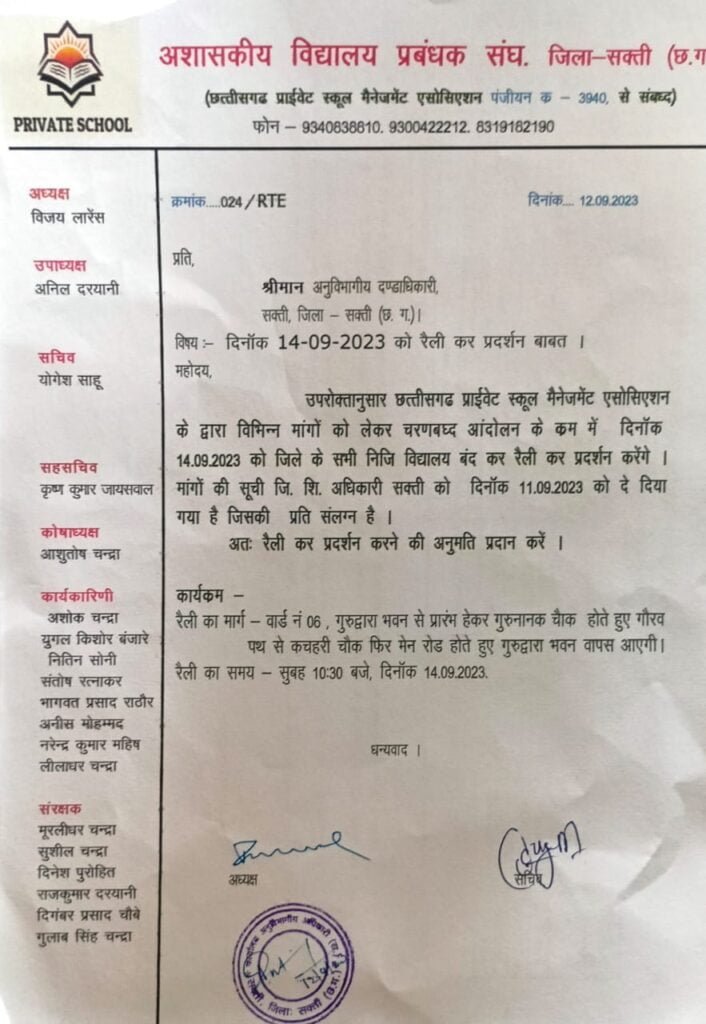 अशासकीय विद्यालय प्रबंधक संघ. जिला–सक्ती (छ.ग
(छत्तीसगढ प्राईवेट स्कूल मैनेजमेंट एसोसिएशन पंजीयन क – 3940, से संबध्द)
PRIVATE SCHOOL
फोन – 9340838810. 9300422212. 8319182190
अध्यक्ष
विजय लारेंस
उपाध्यक्ष
अनिल दरयानी
सचिव
योगेश साहू
सहसचिव
कृष्ण कुमार जायसवाल
कोषाध्यक्ष
आशुतोष चन्द्रा
कार्यकारिणी
अशोक चन्द्रा
युगल किशोर बंजारे
नितिन सोनी
संतोष रत्नाकर
भागवत प्रसाद राठौर
अनीस मोहम्मद
नरेन्द्र कुमार महिष
लीलाधर चन्द्रा
संरक्षक
मूरलीधर चन्द्रा
सुशील चन्द्रा
दिनेश पुरोहित
राजकुमार दरयानी
दिगंबर प्रसाद चौबे
गुलाब सिंह चन्द्रा
क्रमांक.....024/RTE दिनांक.... 12.09.2023
प्रति,
श्रीमान अनुविभागीय दण्डाधिकारी,
सक्ती, जिला – सक्ती (छ. ग.)।
विषय :– दिनॉक 14-09-2023 को रैली कर प्रदर्शन बाबत ।
महोदय,
उपरोक्तानुसार छत्तीसगढ प्राईवेट स्कूल मैनेजमेंट एसोसिएशन
के द्वारा विभिन्न मांगों को लेकर चरणबध्द आंदोलन के कम में दिनॉक
14.09.2023 को जिले के सभी निजि विद्यालय बंद कर रैली कर प्रदर्शन करेंगे ।
मांगों की सूची जि. शि. अधिकारी सक्ती को दिनॉक 11.09.2023 को दे दिया
गया है जिसकी प्रति संलग्न है ।
अतः रैली कर प्रदर्शन करने की अनुमति प्रदान करें ।
कार्यकम –
रैली का मार्ग – वार्ड नं 06 , गुरुद्वारा भवन से प्रारंभ हेकर गुरुनानक चैाक होते हुए गौरव
पथ से कचहरी चौक फिर मेन रोड होते हुए गुरुद्वारा भवन वापस आएगी।
रैली का समय – सुबह 10:30 बजे, दिनॉक 14.09.2023.
धन्यवाद ।
अध्यक्ष
सचिव
कार्यालय अनुविभागीय अधिकारी (रा.)
सक्ती, जिला: सक्ती (छ.ग.)